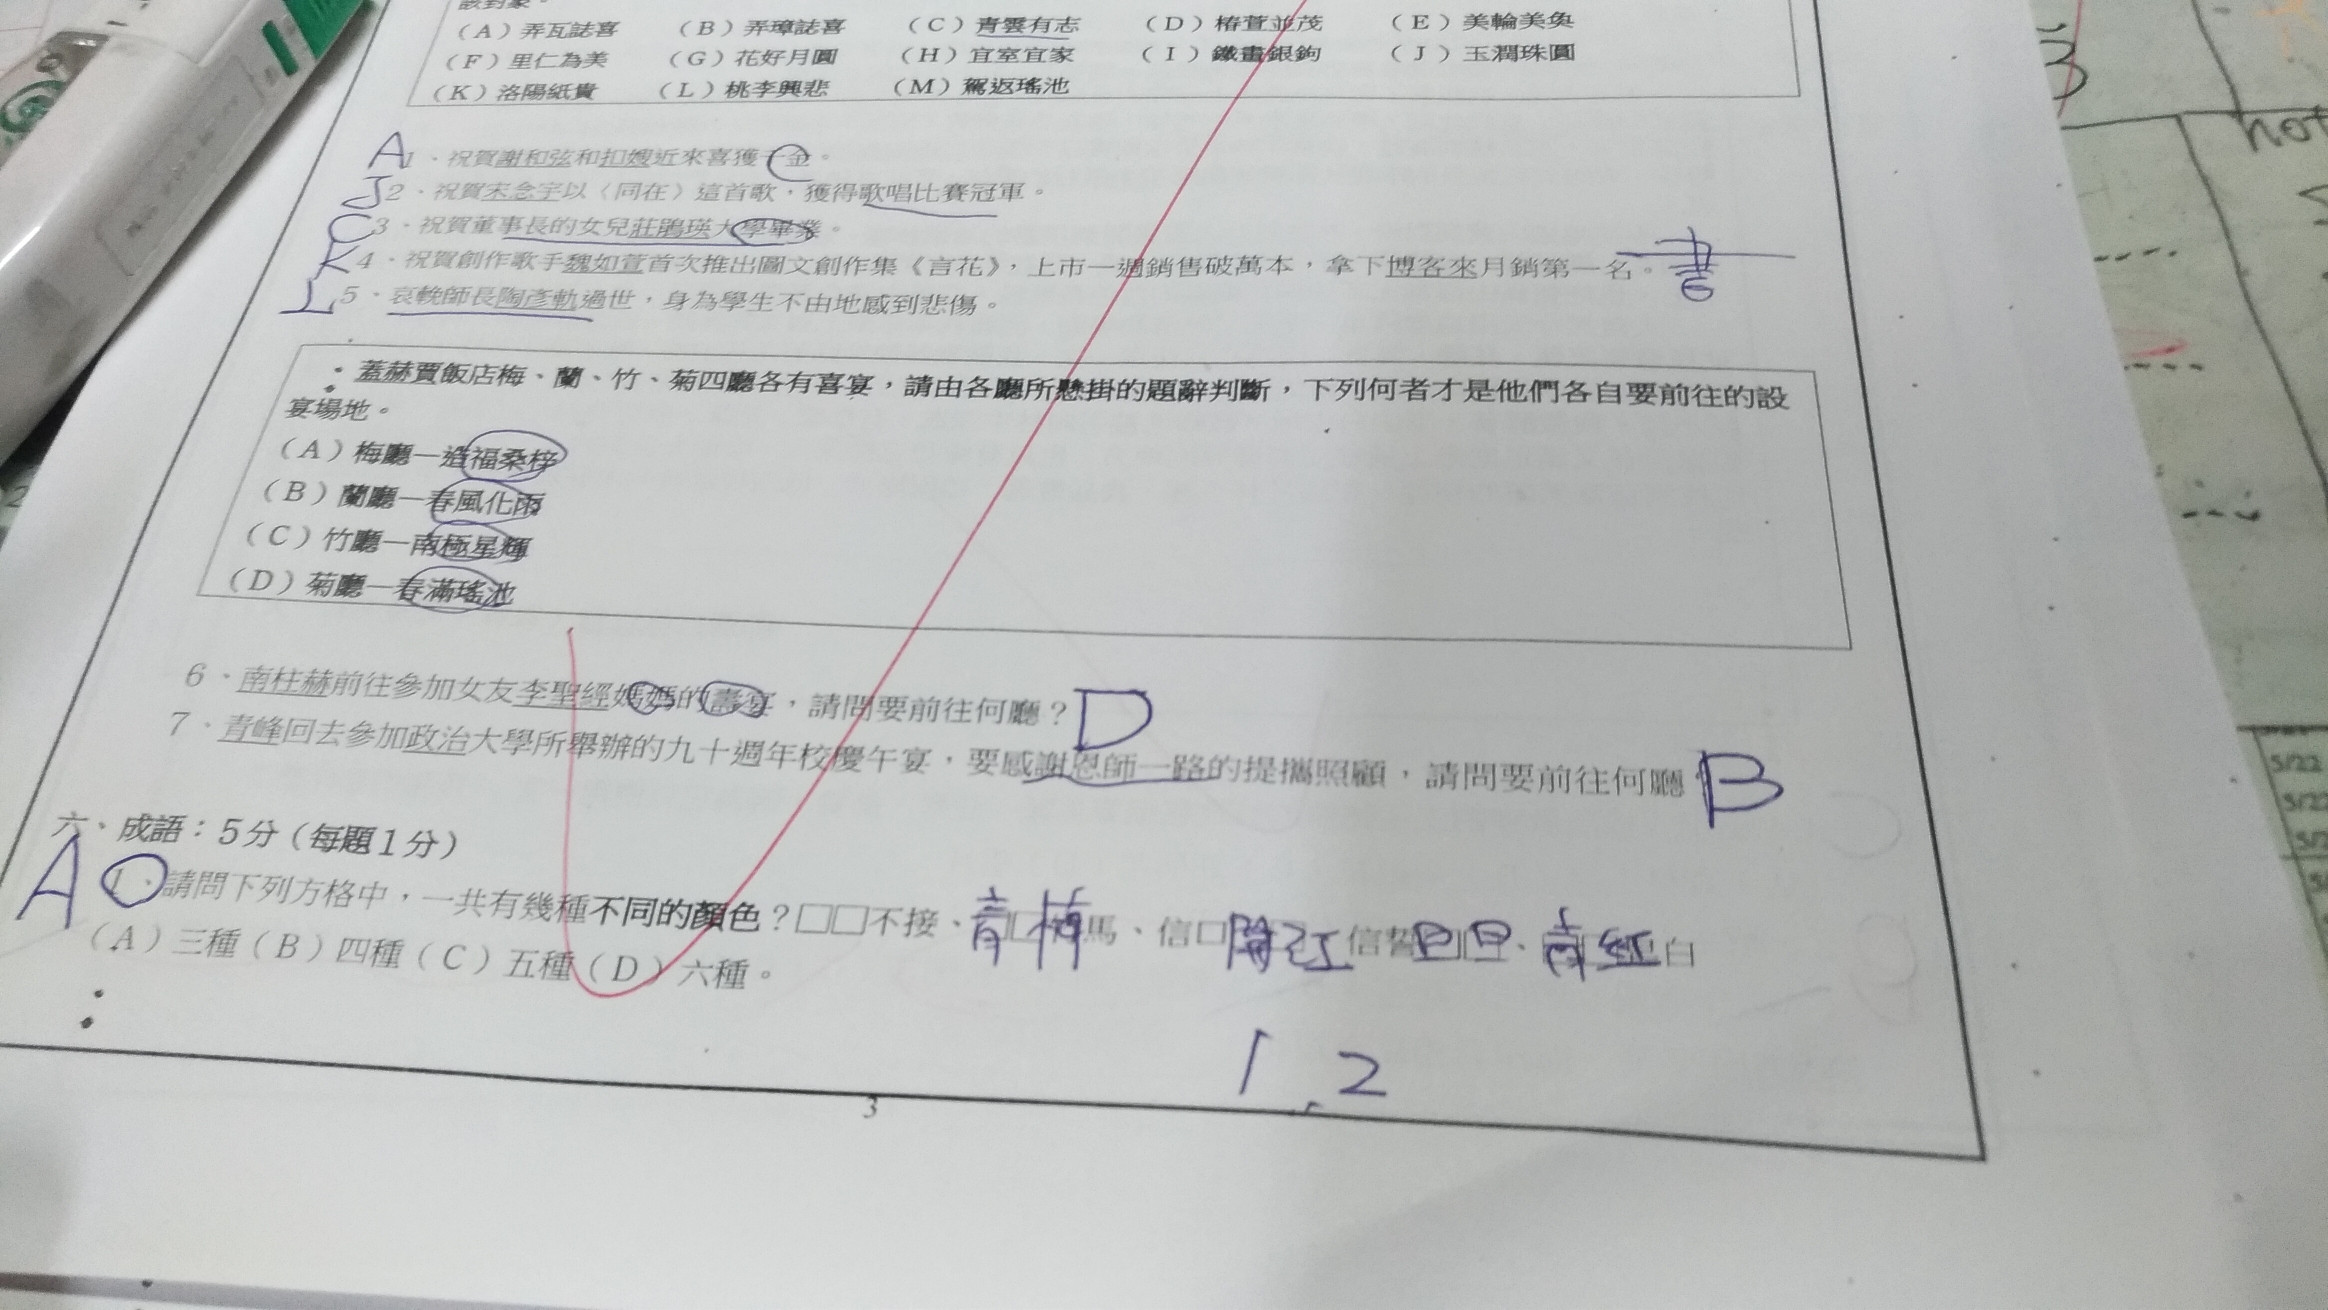 該對象。
（A）弄瓦誌喜 （B）弄璋誌喜 （C）青雲有志 （D）椿萱並茂 （E）美輪美奐
（F）里仁為美 （G）花好月圓 （H）宜室宜家 （I）鐵畫銀鉤 （J）玉潤珠圓
（K）洛陽紙貴 （L）桃李興悲 （M）駕返瑤池
A 1、祝賀謝和弦和扣嫂近來喜獲千金。
J 2、祝賀宋念宇以〈同在〉這首歌，獲得歌唱比賽冠軍。
C 3、祝賀董事長的女兒莊鵑瑛大學畢業。
K 4、祝賀創作歌手魏如萱首次推出圖文創作集《言花》，上市一週銷售破萬本，拿下博客來月銷第一名。書
L 5、哀輓師長陶彥軌過世，身為學生不由地感到悲傷。
．蓋赫賈飯店梅、蘭、竹、菊四廳各有喜宴，請由各廳所懸掛的題辭判斷，下列何者才是他們各自要前往的設
宴場地。
（A）梅廳—造福桑梓
（B）蘭廳—春風化雨
（C）竹廳—南極星輝
（D）菊廳—春滿瑤池
6、南柱赫前往參加女友李聖經媽媽的壽宴，請問要前往何廳？D
7、青峰回去參加政治大學所舉辦的九十週年校慶午宴，要感謝恩師一路的提攜照顧，請問要前往何廳 B
六、成語：5分（每題1分）
A 1、請問下列方格中，一共有幾種不同的顏色？□□不接、青□竹馬、信口開江 信誓旦旦、青紅白
（A）三種（B）四種（C）五種（D）六種。
1.2
3
not
5/22